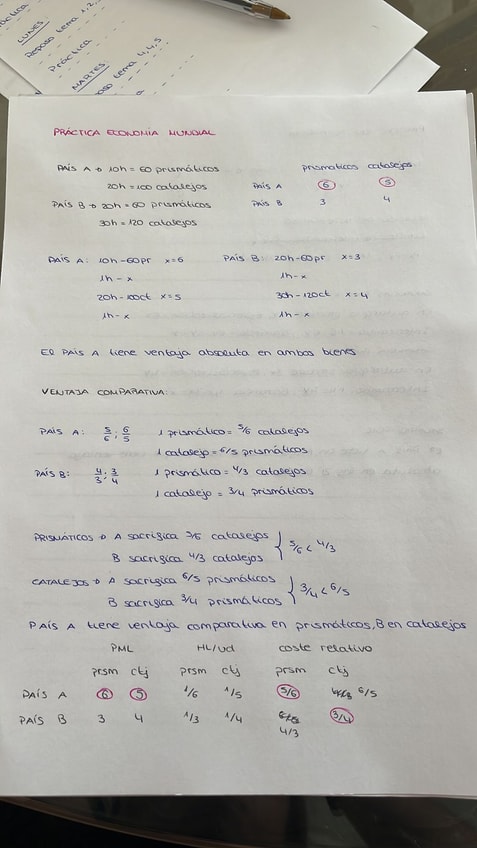 LUNES
Repaso tema 1,2,
Práctica
MARTES
tema 4,4,5
PRÁCTICA ECONOMÍA MUNDIAL
PAÍS A → 10h = 60 prismáticos
20h = 100 catalejos
PAÍS B → 20h = 60 prismáticos
30h = 120 catalejos
prismaticos catalejos
PAÍS A 6 5
PAÍS B 3 4
PAÍS A: 10h - 60pr x=6
1h - x
20h - 100ct x=5
1h - x
PAÍS B: 20h - 60pr x=3
1h - x
30h - 120ct x=4
1h - x
El PAÍS A tiene ventaja absoluta en ambos bienes
VENTAJA COMPARATIVA:
PAÍS A: 5/6 ; 6/5 1 prismático = 5/6 catalejos
1 catalejo = 6/5 prismáticos
PAÍS B: 4/3 ; 3/4 1 prismático = 4/3 catalejos
1 catalejo = 3/4 prismáticos
PRISMÁTICOS → A sacrifica 5/6 catalejos
B sacrifica 4/3 catalejos } 5/6 < 4/3
CATALEJOS → A sacrifica 6/5 prismáticos
B sacrifica 3/4 prismáticos } 3/4 < 6/5
PAÍS A tiene ventaja comparativa en prismáticos, B en catalejos
PML HL/ud coste relativo
prsm ctj prsm ctj prsm ctj
PAÍS A 6 5 1/6 1/5 5/6 6/5
PAÍS B 3 4 1/3 1/4 3/4
4/3